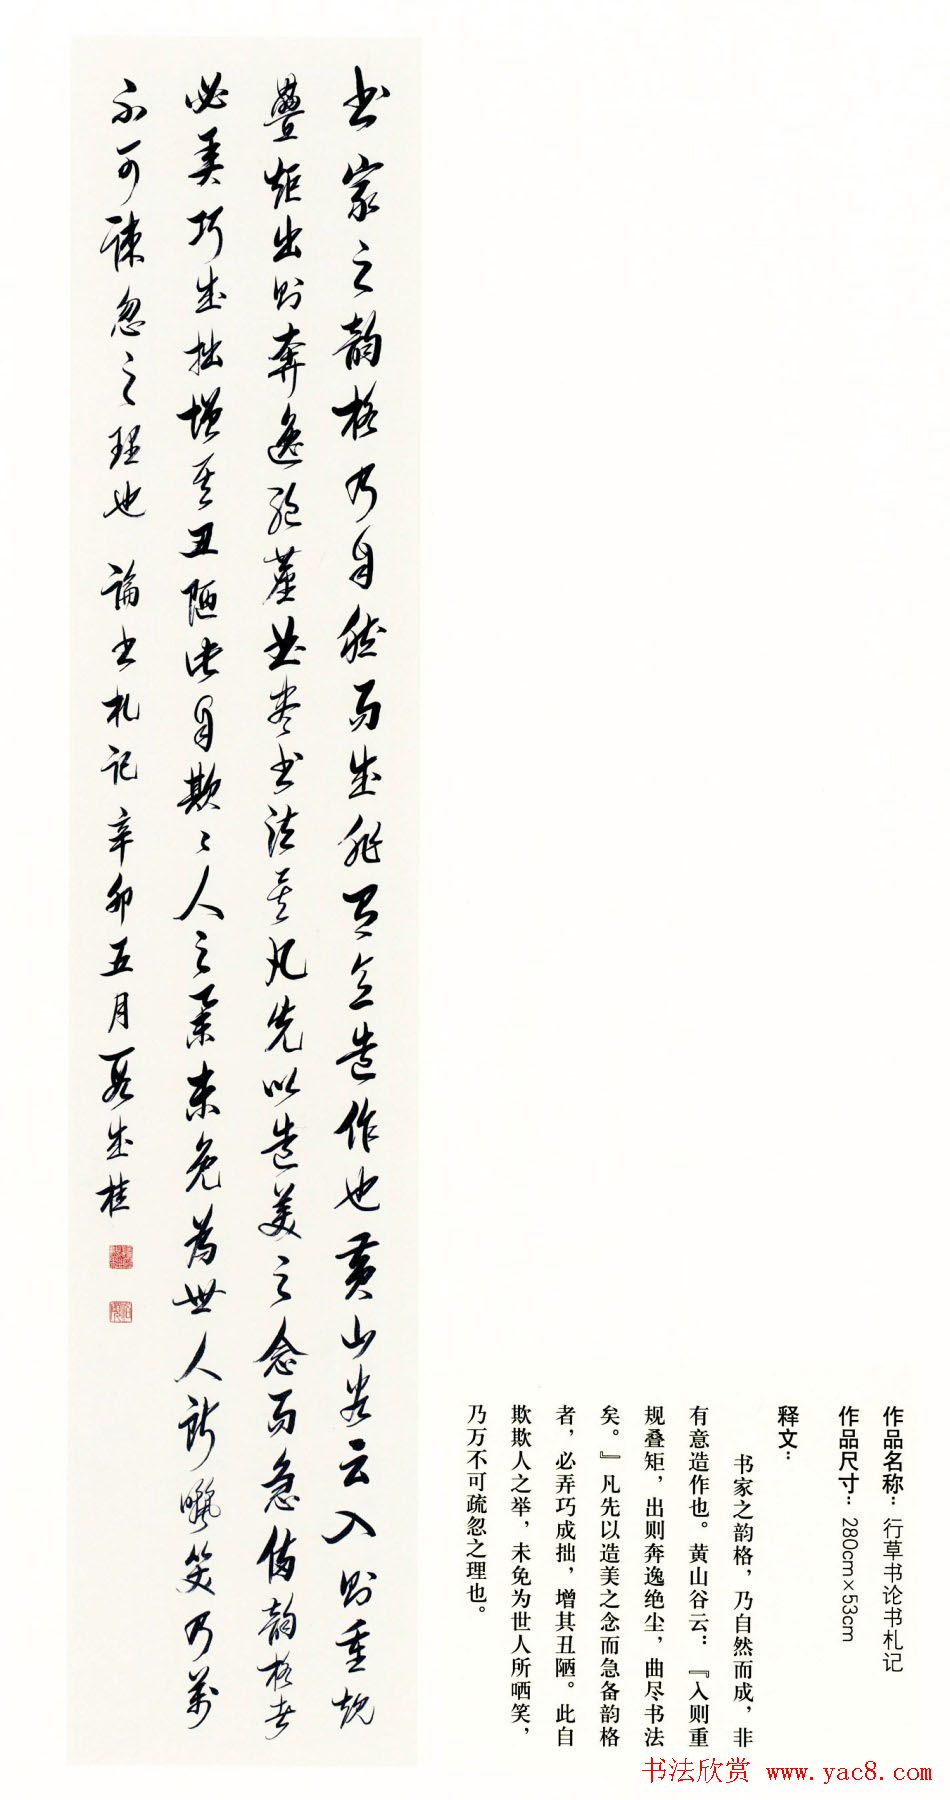 书家之韵格乃自然而成非有意造作也黄山谷云入则重规
叠矩出则奔逸绝尘曲尽书法矣凡先以造美之念而急备韵格者
必弄巧成拙增其丑陋此自欺〻人之举未免为世人所哂笑乃万
不可疎忽之理也 論书札记辛卯五月段成桂
作品名称：行草书论书札记
作品尺寸：280cm×53cm
释文：
书家之韵格，乃自然而成，非
有意造作也。黄山谷云：『入则重
规叠矩，出则奔逸绝尘，曲尽书法
矣。』凡先以造美之念而急备韵格
者，必弄巧成拙，增其丑陋。此自
欺欺人之举，未免为世人所哂笑，
乃万不可疏忽之理也。
书法欣赏 www.yac8.com